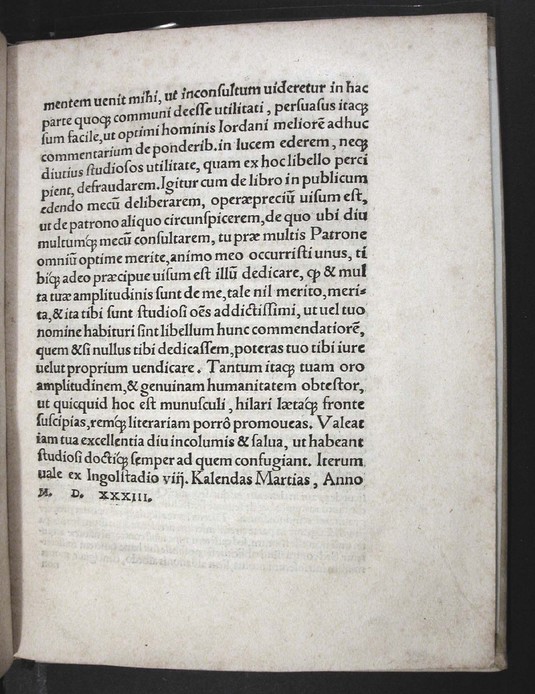 mentem uenit mihi, ut inconsultum uideretur in hac
parte quoqꝫ communi deesse utilitati, persuasus itaqꝫ
sum facile, ut optimi hominis Iordani meliorē adhuc
commentarium de ponderib. in lucem ederem, neqꝫ
diutius studiosos utilitate, quam ex hoc libello perci
pient, defraudarem. Igitur cum de libro in publicum
edendo mecū deliberarem, operæpreciū uisum est,
ut de patrono aliquo circunspicerem, de quo ubi diu
multumqꝫ mecū consultarem, tu præ multis Patrone
omniū optime merite, animo meo occurristi unus, ti
biqꝫ adeo præcipue uisum est illū dedicare, ꝙ & mul
ta tuæ amplitudinis sunt de me, tale nil merito, meri-
ta, & ita tibi sunt studiosi oēs addictissimi, ut uel tuo
nomine habituri sint libellum hunc commendatiorē,
quem & si nullus tibi dedicassem, poteras tuo tibi iure
uelut proprium uendicare. Tantum itaqꝫ tuam oro
amplitudinem, & genuinam humanitatem obtestor,
ut quicquid hoc est munusculi, hilari lætaqꝫ fronte
suscipias, remqꝫ literariam porrô promoueas. Valeat
iam tua excellentia diu incolumis & salua, ut habeant
studiosi doctiqꝫ semper ad quem confugiant. Iterum
uale ex Ingolstadio viij. Kalendas Martias, Anno
M. D. XXXIII.